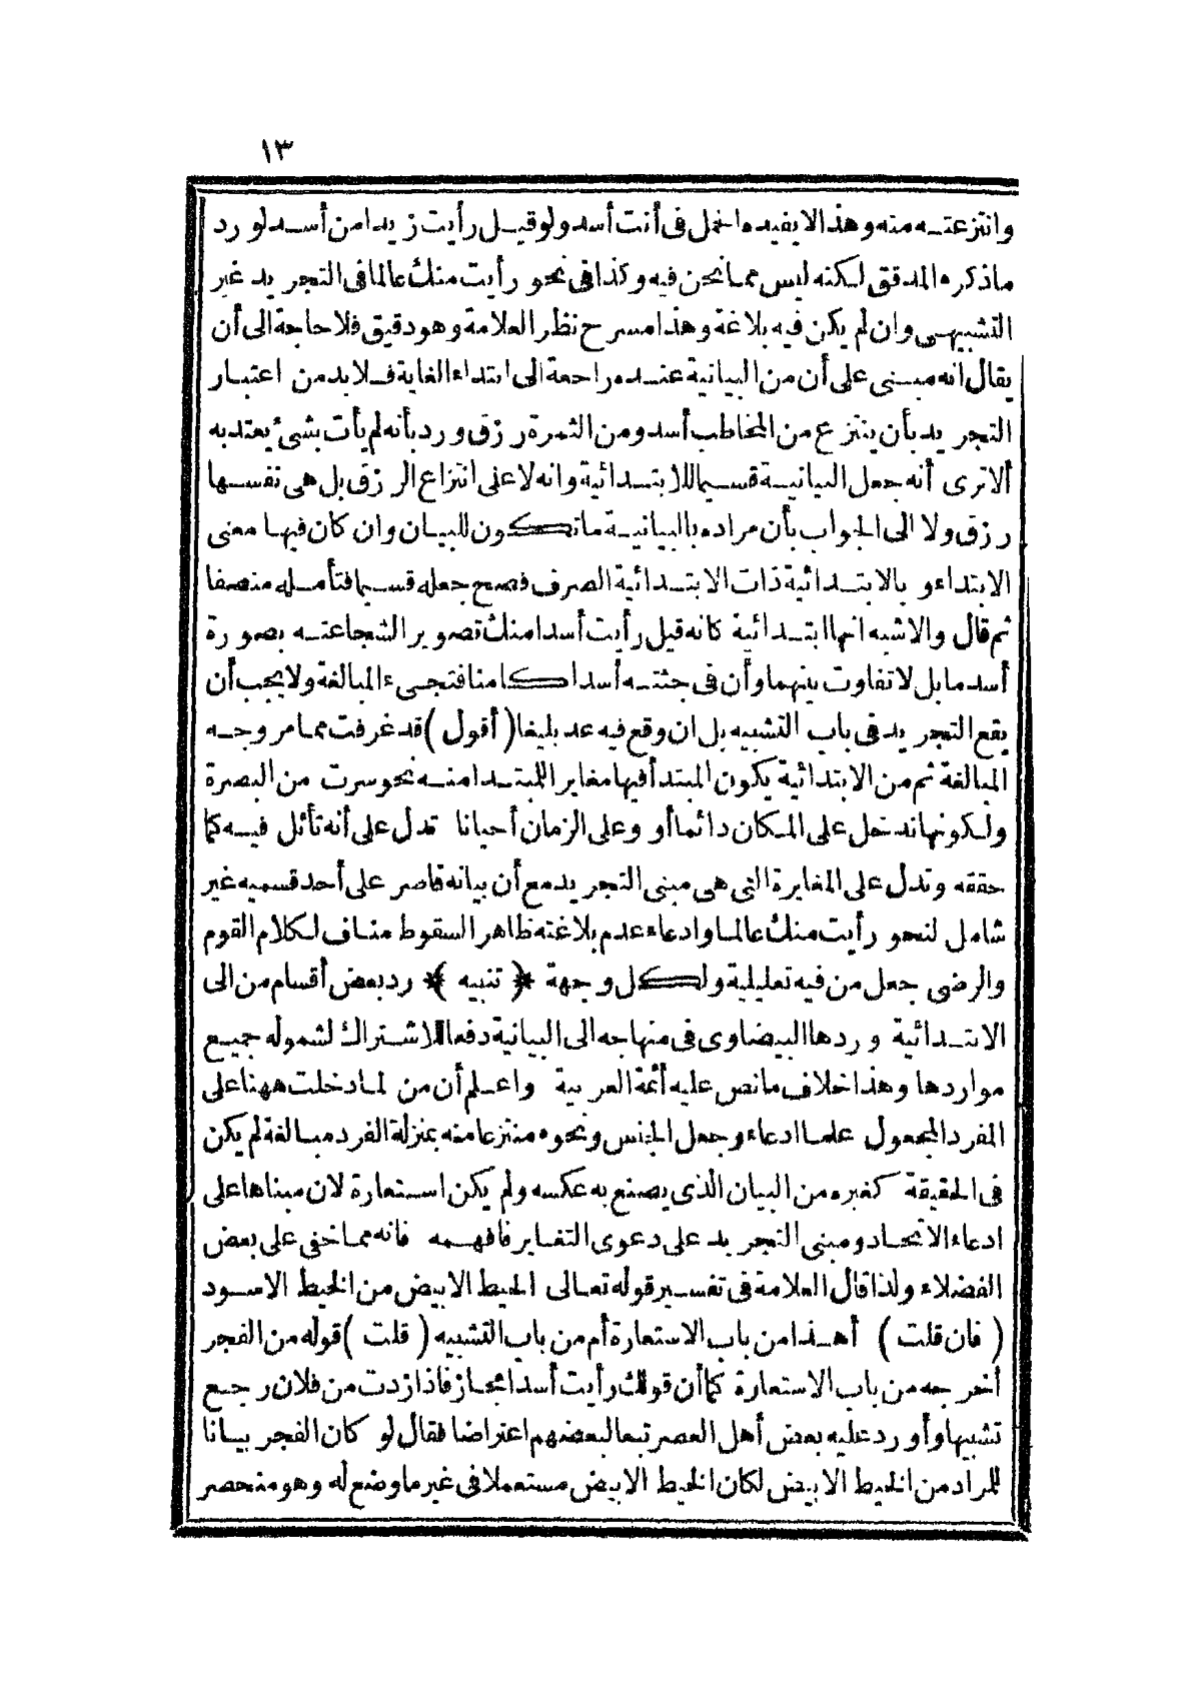 ١٣
وانتزعته منه وهذا لا يفيده الحمل فى أنت أسد ولو قيل رأيت زيدا من أسد لورد
ماذكره المدقق لكنه ليس مما نحن فيه وكذا فى نحو رأيت منك عالما فى التجريد غير
التشبيهى وان لم يكن فيه بلاغة وهذا مسرح نظر العلامة وهو دقيق فلا حاجة الى أن
يقال انه مبنى على أن من البيانية عنده راجعة الى ابتداء الغاية فلا بد من اعتبار
التجريد بأن ينتزع من المخاطب أسد ومن الثمرة رزق ورد بأنه لم يأت بشئ يعتد به
ألا ترى أنه جعل البيانية قسيما للابتدائية وانه لا على انتزاع الرزق بل هى نفسها
رزق ولا الى الجواب بأن مراده بالبيانية ما تكون للبيان وان كان فيها معنى
الابتداء وبالابتدائية ذات الابتدائية الصرف فصح جعله قسيما فتأمله منصفا
ثم قال والاشبه انها ابتدائية كانه قيل رأيت أسدا منك تصوير الشجاعته بصورة
أسد ما بل لا تفاوت بينهما وأن فى جثته أسدا كامنا فتجىء المبالغة ولا يجب أن
يقع التجريد فى باب التشبيه بل ان وقع فيه عد بليغا (أقول) قد عرفت مما مر وجه
المبالغة ثم من الابتدائية يكون المبتدأ فيها مغاير المبتدا منه نحو سرت من البصرة
ولكونها تدخل على المكان دائما أو وعلى الزمان أحيانا تدل على أنه تأثل فيه كما
حققه وتدل على المغايرة التى هى مبنى التجريد مع أن بيانه قاصر على أحد قسميه غير
شامل لنحو رأيت منك عالما وادعاء عدم بلاغته ظاهر السقوط مناف لكلام القوم
والرضى جعل من فيه تعليلية ولكل وجهة * (تنبيه) * رد بعض أقسام من الى
الابتدائية وردها البيضاوى فى منهاجه الى البيانية دفعا للاشتراك لشموله جميع
مواردها وهذا خلاف ما نص عليه أئمة العربية واعلم أن من لما دخلت ههنا على
المفرد المجعول علما ادعاء وجعل الجنس ونحوه منتزعا منه بمنزلة الفرد مبالغة لم يكن
فى الحقيقة كغيره من البيان الذى يصنع به عكسه ولم يكن استعارة لان مبناها على
ادعاء الاتحاد ومبنى التجريد على دعوى التغاير فافهمه فانه مما خفى على بعض
الفضلاء ولذا قال العلامة فى تفسير قوله تعالى الخيط الابيض من الخيط الاسود
(فان قلت) أهذا من باب الاستعارة أم من باب التشبيه (قلت) قوله من الفجر
أخرجه من باب الاستعارة كما أن قولك رأيت أسدا مجاز فاذا زدت من فلان رجع
تشبيها وأورد عليه بعض أهل العصر تبعا لبعضهم اعتراضا فقال لو كان الفجر بيانا
للمراد من الخيط الابيض لكان الخيط الابيض مستعملا فى غير ما وضع له وهو منحصر